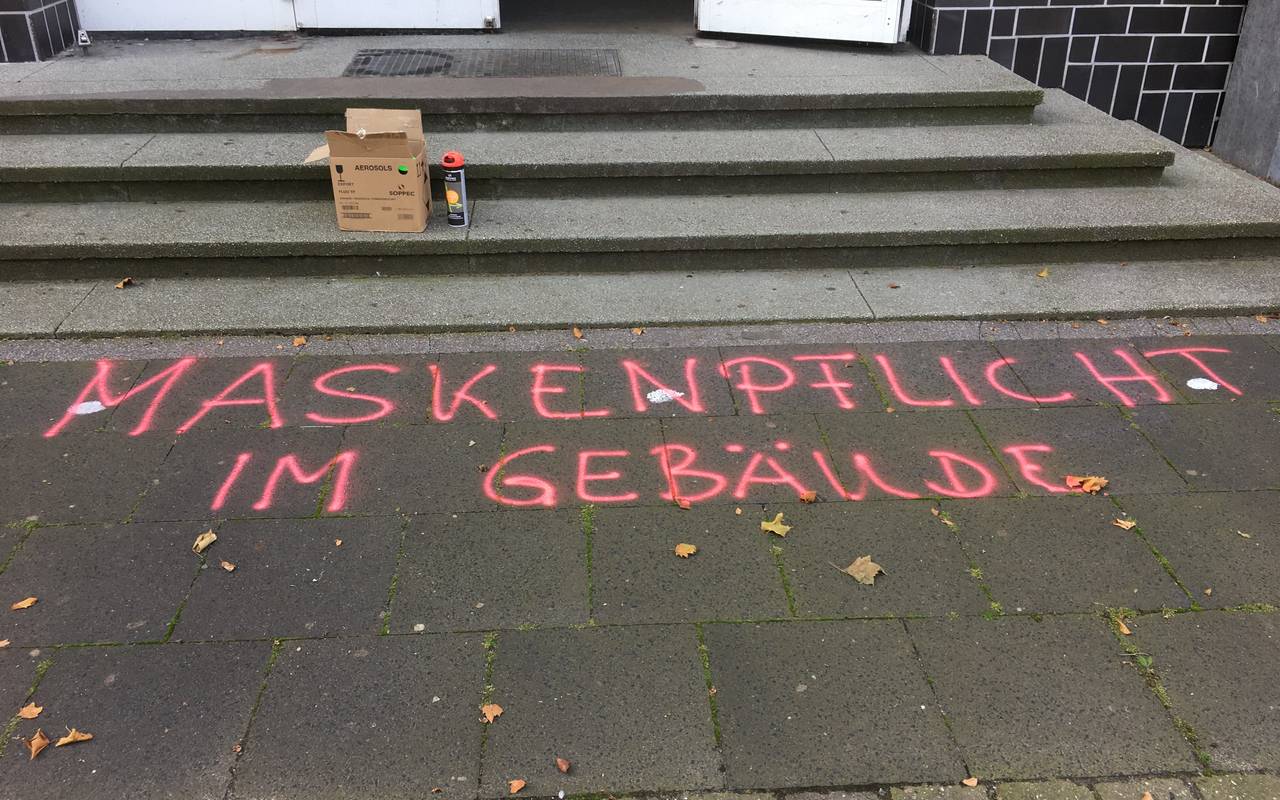 AEROSOLS
EXPORT
SOPPEC
MASKENPFLICHT
IM GEBÄUDE